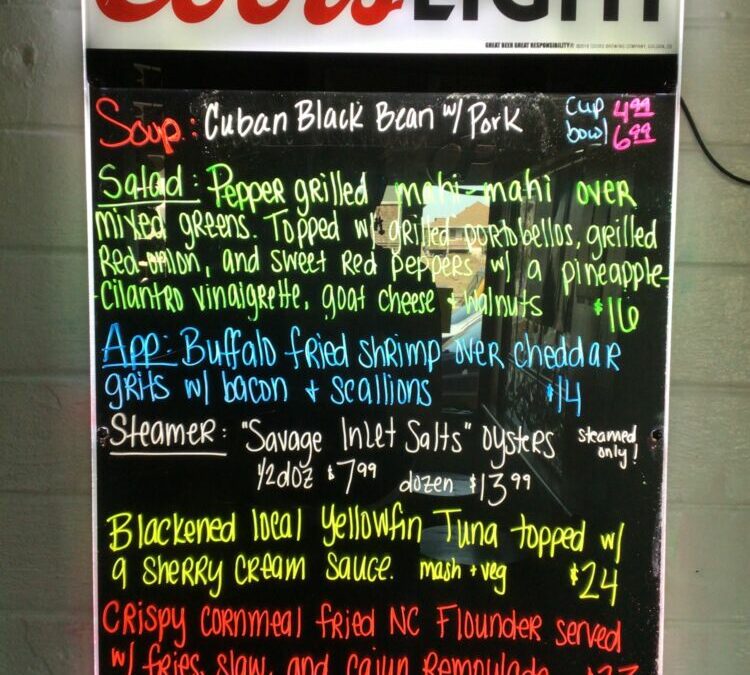 Coors LIGHT
GREAT BEER GREAT RESPONSIBILITY
Soup: Cuban Black Bean w/ Pork cup 4.99
bowl 6.99
Salad: Pepper grilled mahi-mahi over
mixed greens. Topped w/ grilled portobellos, grilled
Red onion, and sweet Red Peppers w/ a pineapple-
Cilantro vinaigrette, goat cheese + walnuts $16
App: Buffalo fried shrimp over cheddar
grits w/ bacon + scallions $14
Steamer: "Savage Inlet Salts" oysters steamed only!
1/2 doz $7.99 dozen $13.99
Blackened local Yellowfin Tuna topped w/
a sherry cream sauce. mash + veg $24
Crispy cornmeal fried NC Flounder served
w/ fries, slaw, and cajun Remoulade